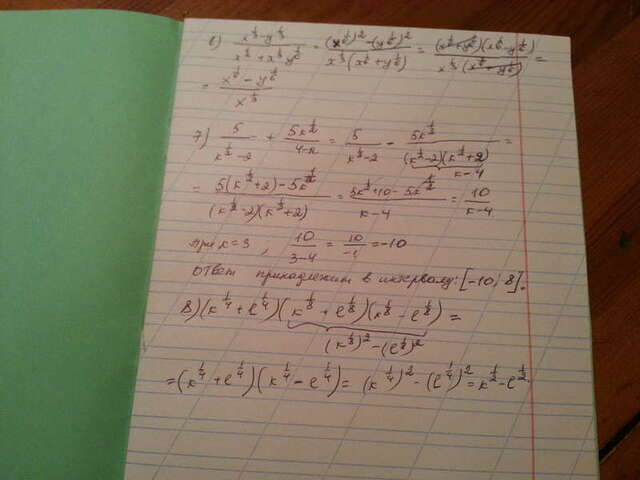 6) (x^{1/3} - y^{1/3})/(x^{1/3} + x^{1/3}y^{1/6}) = ((x^{1/6})^2 - (y^{1/6})^2)/(x^{1/3}(x^{1/6} + y^{1/6})) = ((x^{1/6} + y^{1/6})(x^{1/6} - y^{1/6}))/(x^{1/3}(x^{1/6} + y^{1/6})) =
= (x^{1/6} - y^{1/6})/x^{1/3}
7) 5/(к^{1/2} - 2) + 5к^{1/2}/(4 - к) = 5/(к^{1/2} - 2) - 5к^{1/2}/((к^{1/2} - 2)(к^{1/2} + 2)) =
к - 4
= (5(к^{1/2} + 2) - 5к^{1/2})/((к^{1/2} - 2)(к^{1/2} + 2)) = (5к^{1/2} + 10 - 5к^{1/2})/(к - 4) = 10/(к - 4)
при к = 3, 10/(3 - 4) = 10/-1 = -10
ответ принадлежит в интервалу: [-10; 8].
8) (к^{1/4} + e^{1/4})(к^{1/8} + e^{1/8})(к^{1/8} - e^{1/8}) =
(к^{1/8})^2 - (e^{1/8})^2
= (к^{1/4} + e^{1/4})(к^{1/4} - e^{1/4}) = (к^{1/4})^2 - (e^{1/4})^2 = к^{1/2} - e^{1/2}.